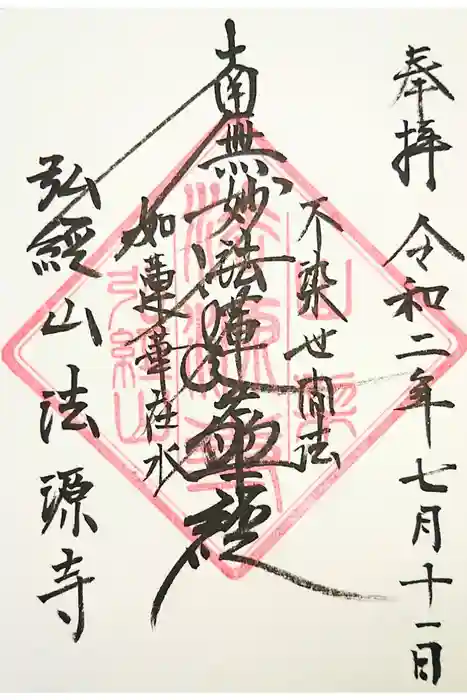 奉拝 令和二年七月十一日
不染世間法
南無妙法蓮華経
如蓮華在水
弘經山 法源寺